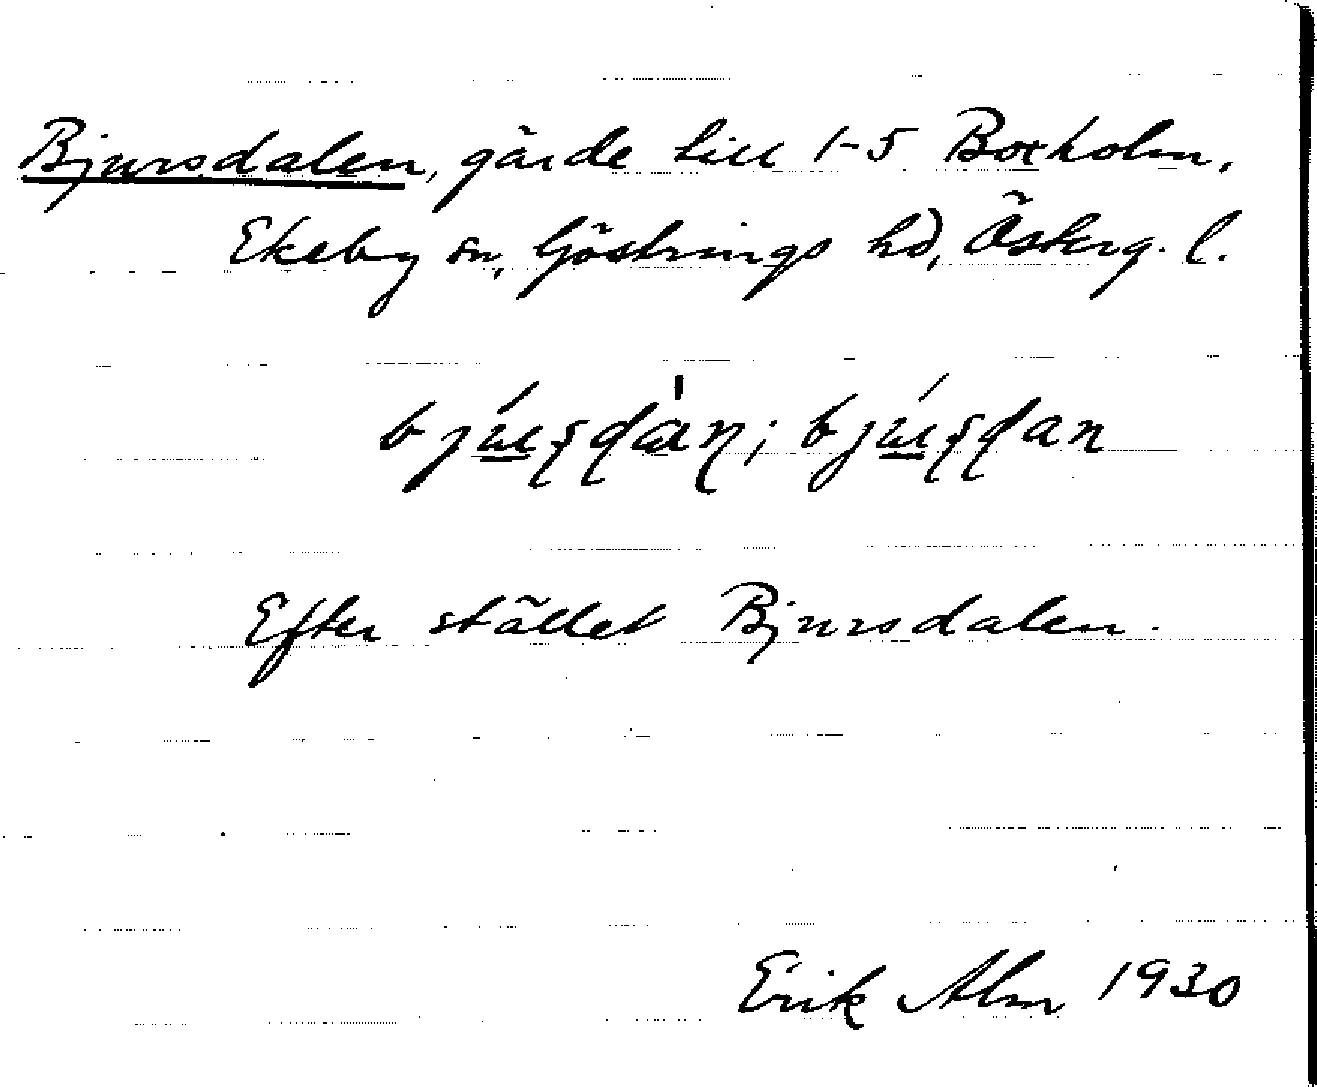 Bjursdalen, gärde till 1-5 Boxholm,
Ekeby sn, Göstrings hd, Österg. l.
Efter stället Bjursdalen.
Erik Alm 1930